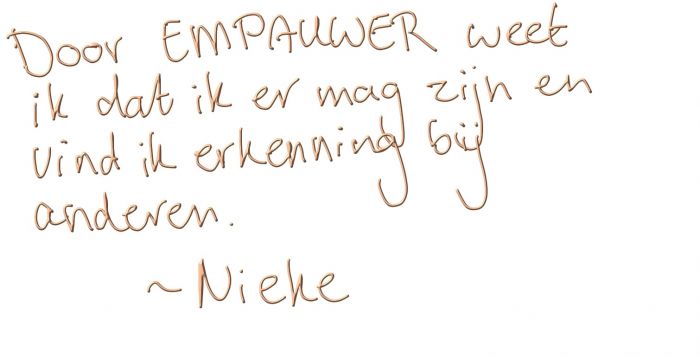 Door EMPAUWER weet
ik dat ik er mag zijn en
vind ik erkenning bij
anderen.
~Nieke